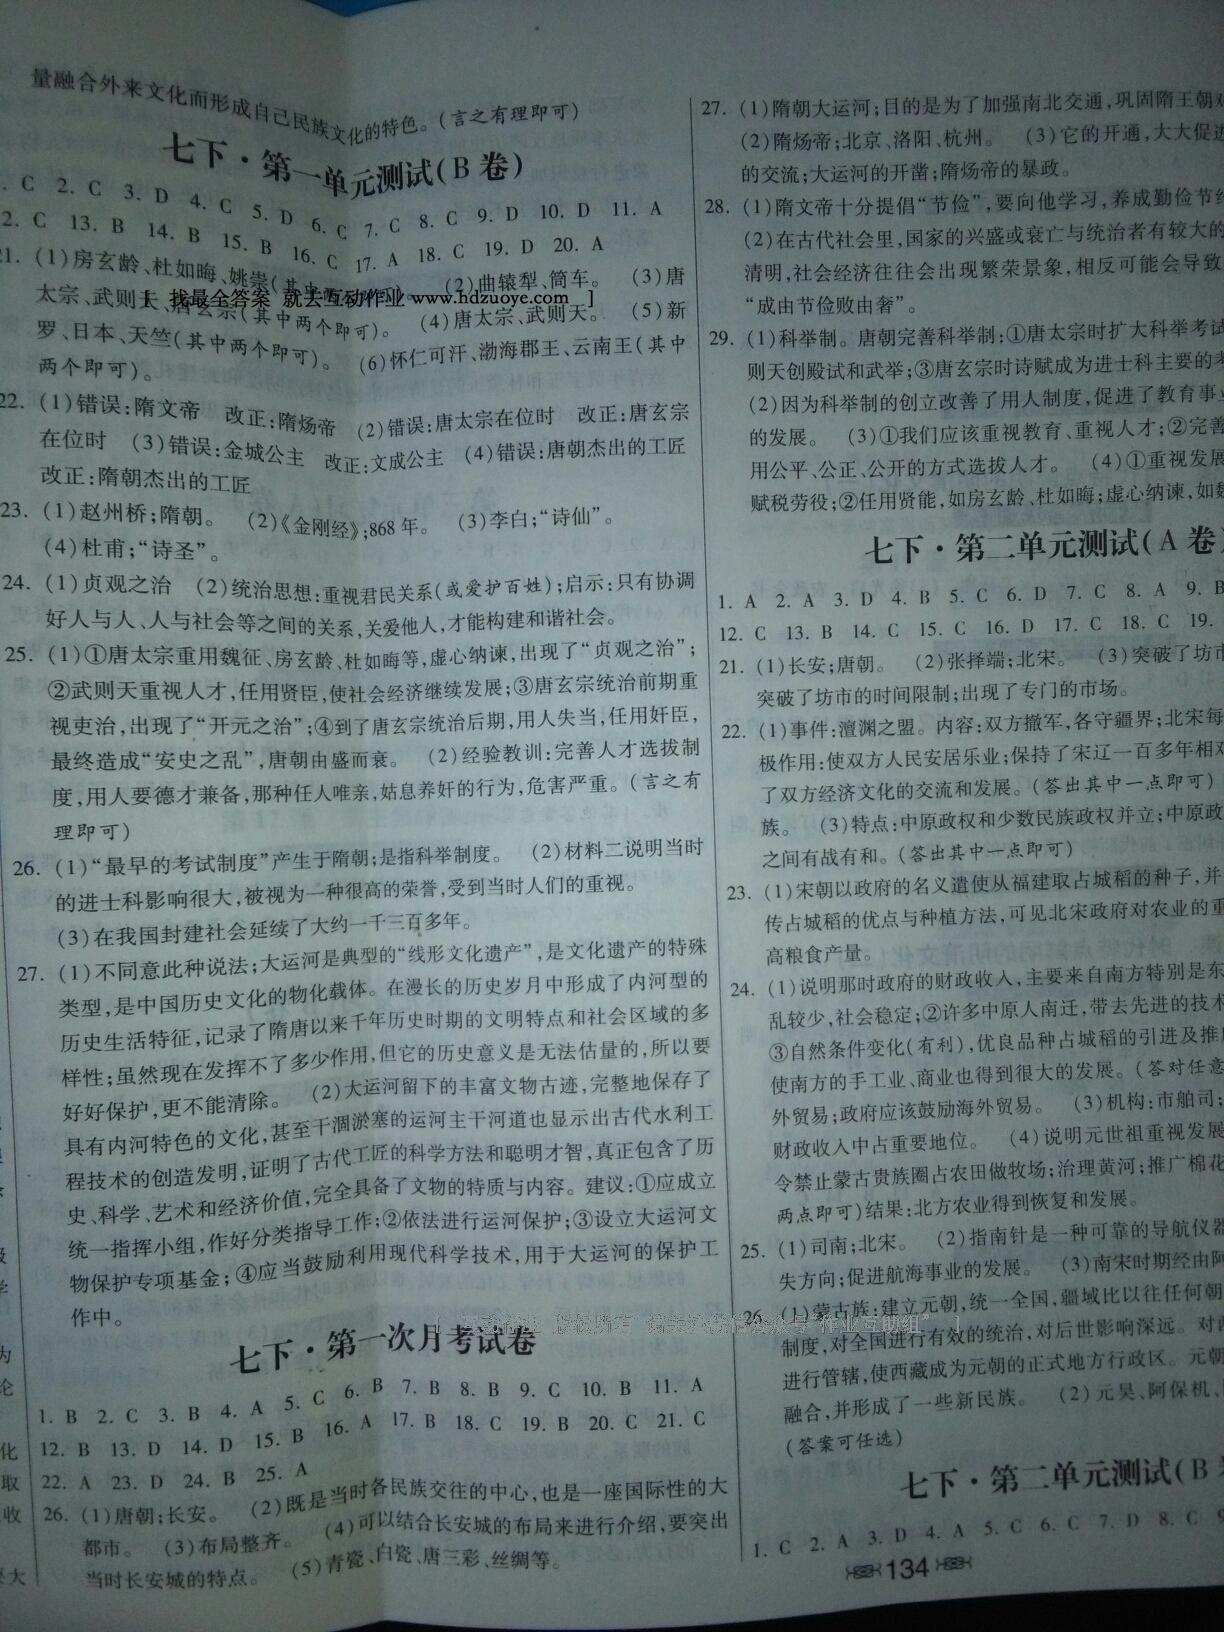 量融合外来文化而形成自己民族文化的特色。(言之有理即可)
七下·第一单元测试(B卷)
. C 2. C 3. D 4. C 5. D 6. C 7. C 8. C 9. D 10. D 11. A
2. C 13. B 14. B 15. B 16. C 17. A 18. C 19. D 20. A
21. (1)房玄龄、杜如晦、姚崇(其中两个即可)。 (2)曲辕犁、筒车。 (3)唐
太宗、武则天、唐玄宗(其中两个即可)。 (4)唐太宗、武则天。 (5)新
[ 找最全答案 就去互动作业 www.hdzuoye.com ]
罗、日本、天竺(其中两个即可)。 (6)怀仁可汗、渤海郡王、云南王(其中
两个即可)。
22. (1)错误:隋文帝 改正:隋炀帝 (2)错误:唐太宗在位时 改正:唐玄宗
在位时 (3)错误:金城公主 改正:文成公主 (4)错误:唐朝杰出的工匠
改正:隋朝杰出的工匠
23. (1)赵州桥;隋朝。 (2)《金刚经》;868年。 (3)李白;“诗仙”。
(4)杜甫;“诗圣”。
24. (1)贞观之治 (2)统治思想:重视君民关系(或爱护百姓);启示:只有协调
好人与人、人与社会等之间的关系,关爱他人,才能构建和谐社会。
25. (1)①唐太宗重用魏征、房玄龄、杜如晦等,虚心纳谏,出现了“贞观之治”;
②武则天重视人才,任用贤臣,使社会经济继续发展;③唐玄宗统治前期重
视吏治,出现了“开元之治”;④到了唐玄宗统治后期,用人失当,任用奸臣,
最终造成“安史之乱”,唐朝由盛而衰。 (2)经验教训:完善人才选拔制
度,用人要德才兼备,那种任人唯亲,姑息养奸的行为,危害严重。(言之有
理即可)
26. (1)“最早的考试制度”产生于隋朝;是指科举制度。 (2)材料二说明当时
的进士科影响很大,被视为一种很高的荣誉,受到当时人们的重视。
(3)在我国封建社会延续了大约一千三百多年。
27. (1)不同意此种说法;大运河是典型的“线形文化遗产”,是文化遗产的特殊
类型,是中国历史文化的物化载体。在漫长的历史岁月中形成了内河型的
历史生活特征,记录了隋唐以来千年历史时期的文明特点和社会区域的多
样性;虽然现在发挥不了多少作用,但它的历史意义是无法估量的,所以要
好好保护,更不能清除。 (2)大运河留下的丰富文物古迹,完整地保存了
具有内河特色的文化,甚至干涸淤塞的运河主干河道也显示出古代水利工
程技术的创造发明,证明了古代工匠的科学方法和聪明才智,真正包含了历
史、科学、艺术和经济价值,完全具备了文物的特质与内容。建议:①应成立
统一指挥小组,作好分类指导工作;②依法进行运河保护;③设立大运河文
物保护专项基金;④应当鼓励利用现代科学技术,用于大运河的保护工
作中。
七下·第一次月考试卷
1. B 2. C 3. B 4. A 5. C 6. B 7. B 8. B 9. C 10. B 11. A
12. B 13. D 14. D 15. B 16. A 17. B 18. C 19. B 20. C 21. C
22. A 23. D 24. B 25. A
26. (1)唐朝;长安。 (2)既是当时各民族交往的中心,也是一座国际性的大
都市。 (3)布局整齐。 (4)可以结合长安城的布局来进行介绍,要突出
当时长安城的特点。 (5)青瓷、白瓷、唐三彩、丝绸等。
27. (1)隋朝大运河;目的是为了加强南北交通,巩固隋王朝对
(2)隋炀帝;北京、洛阳、杭州。 (3)它的开通,大大促进
的交流;大运河的开凿;隋炀帝的暴政。
28. (1)隋文帝十分提倡“节俭”,要向他学习,养成勤俭节约
(2)在古代社会里,国家的兴盛或衰亡与统治者有较大的
清明,社会经济往往会出现繁荣景象,相反可能会导致
“成由节俭败由奢”。
29. (1)科举制。唐朝完善科举制:①唐太宗时扩大科举考试
则天创殿试和武举;③唐玄宗时诗赋成为进士科主要的考
(2)因为科举制的创立改善了用人制度,促进了教育事业
的发展。 (3)①我们应该重视教育、重视人才;②完善
用公平、公正、公开的方式选拔人才。 (4)①重视发展
赋税劳役;②任用贤能,如房玄龄、杜如晦;虚心纳谏,如魏
七下·第二单元测试(A卷)
1. A 2. A 3. D 4. B 5. C 6. D 7. C 8. A 9. B
12. C 13. B 14. C 15. C 16. D 17. C 18. C 19.
21. (1)长安;唐朝。 (2)张择端;北宋。 (3)突破了坊市
突破了坊市的时间限制;出现了专门的市场。
22. (1)事件:澶渊之盟。内容:双方撤军,各守疆界;北宋每
极作用:使双方人民安居乐业;保持了宋辽一百多年相对
了双方经济文化的交流和发展。(答出其中一点即可)
族。 (3)特点:中原政权和少数民族政权并立;中原政
之间有战有和。(答出其中一点即可)
23. (1)宋朝以政府的名义遣使从福建取占城稻的种子,并
传占城稻的优点与种植方法,可见北宋政府对农业的重
高粮食产量。
24. (1)说明那时政府的财政收入,主要来自南方特别是东
乱较少,社会稳定;②许多中原人南迁,带去先进的技术
③自然条件变化(有利),优良品种占城稻的引进及推广
使南方的手工业、商业也得到很大的发展。(答对任意
外贸易;政府应该鼓励海外贸易。 (3)机构:市舶司;
财政收入中占重要地位。 (4)说明元世祖重视发展
令禁止蒙古贵族圈占农田做牧场;治理黄河;推广棉花
两点即可)结果:北方农业得到恢复和发展。
25. (1)司南;北宋。 (2)指南针是一种可靠的导航仪器
失方向;促进航海事业的发展。 (3)南宋时期经由阿
26. (1)蒙古族:建立元朝,统一全国,疆域比以往任何朝
制度,对全国进行有效的统治,对后世影响深远。对西
进行管辖,使西藏成为元朝的正式地方行政区。元朝
融合,并形成了一些新民族。 (2)元昊、阿保机、
(答案可任选)
七下·第二单元测试(B卷
1. C 2. A 3. D 4. A 5. C 6. C 7. D 8. C 9
134